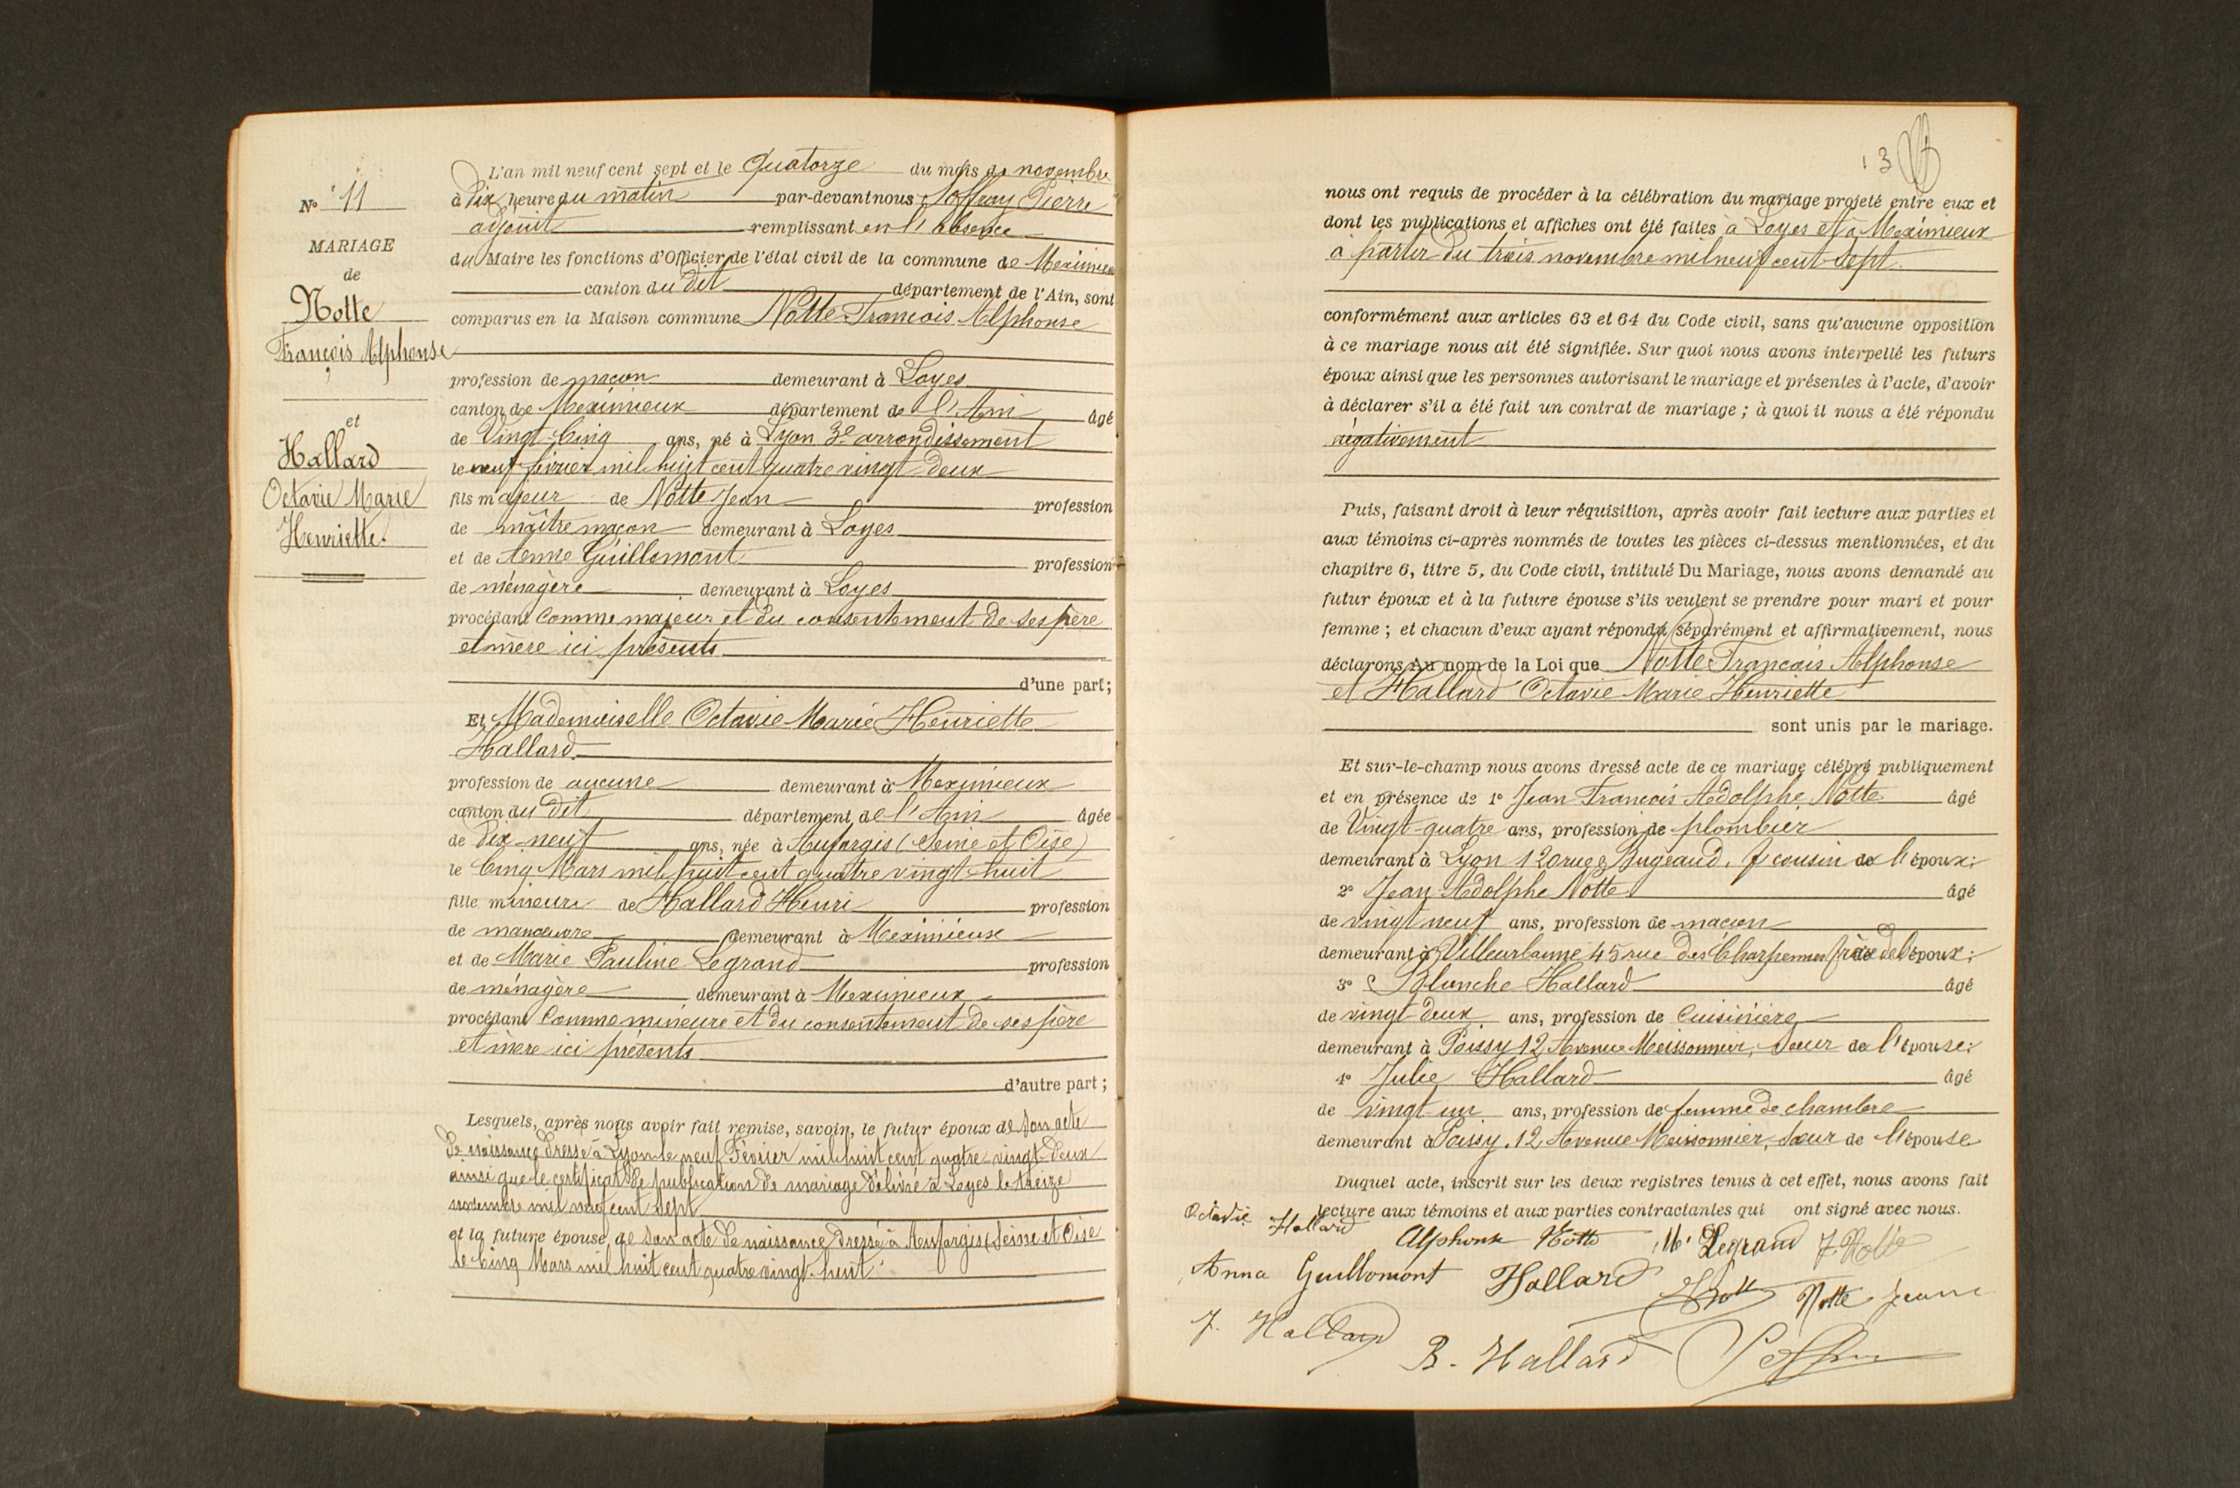 N° 11
MARIAGE
de
Notte
François Alphonse
et
Hallard
Octavie Marie
Henriette.
L'an mil neuf cent sept et le quatorze du mois de novembre
à dix heure du matin par-devant nous Joffray Pierre
adjoint remplissant en l'absence
du Maire les fonctions d'Officier de l'état civil de la commune de Meximieux
canton du dit département de l'Ain, sont
comparus en la Maison commune Notte François Alphonse
profession de maçon demeurant à Loyes
canton de Meximieux département de l'Ain âgé
de Vingt-Cinq ans, né à Lyon 3e arrondissement
le neuf février mil huit cent quatre vingt deux
fils majeur de Notte Jean profession
de maître maçon demeurant à Loyes
et de Anne Guillomont profession
de ménagère demeurant à Loyes
procédant comme majeur et du consentement de ses père
et mère ici présents
d'une part;
Et Mademoiselle Octavie Marie Henriette
Hallard
profession de aucune demeurant à Meximieux
canton du dit département de l'Ain âgée
de dix neuf ans, née à Aufargis (Seine et Oise)
le Cinq Mars mil huit cent quatre vingt huit
fille mineure de Hallard Henri profession
de manœuvre demeurant à Meximieux
et de Marie Pauline Legrand profession
de ménagère demeurant à Meximieux
procédant Comme mineure et du consentement de ses père
et mère ici présents
d'autre part;
Lesquels, après nous avoir fait remise, savoir, le futur époux de son acte
de naissance dressé à Lyon le neuf Février mil huit cent quatre vingt deux
ainsi que le certificat de publication de mariage délivré à Loyes le treize
novembre mil neuf cent sept
et la future épouse de son acte de naissance dressé à Aufargis (Seine et Oise
le Cinq Mars mil huit cent quatre vingt huit
13
nous ont requis de procéder à la célébration du mariage projeté entre eux et
dont les publications et affiches ont été faites à Loyes et à Meximieux
à partir du trois novembre mil neuf cent sept.
conformément aux articles 63 et 64 du Code civil, sans qu'aucune opposition
à ce mariage nous ait été signifiée. Sur quoi nous avons interpellé les futurs
époux ainsi que les personnes autorisant le mariage et présentes à l'acte, d'avoir
à déclarer s'il a été fait un contrat de mariage; à quoi il nous a été répondu
négativement
Puis, faisant droit à leur réquisition, après avoir fait lecture aux parties et
aux témoins ci-après nommés de toutes les pièces ci-dessus mentionnées, et du
chapitre 6, titre 5, du Code civil, intitulé Du Mariage, nous avons demandé au
futur époux et à la future épouse s'ils veulent se prendre pour mari et pour
femme; et chacun d'eux ayant répondu séparément et affirmativement, nous
déclarons Au nom de la Loi que Notte François Alphonse
et Hallard Octavie Marie Henriette
sont unis par le mariage.
Et sur-le-champ nous avons dressé acte de ce mariage célébré publiquement
et en présence de 1° Jean François Adolphe Notte âgé
de Vingt-quatre ans, profession de plombier
demeurant à Lyon 120 rue Bugeaud, cousin de l'époux;
2° Jean Adolphe Notte âgé
de vingt neuf ans, profession de maçon
demeurant à Villeurbanne 45 rue des Charpennes frère de l'époux;
3° Blanche Hallard âgé
de vingt deux ans, profession de Cuisinière
demeurant à Poissy 12, Avenue Meissonnier, sœur de l'épouse;
4° Julie Hallard âgé
de vingt un ans, profession de femme de chambre
demeurant à Poissy, 12 Avenue Meissonnier, sœur de l'épouse
Duquel acte, inscrit sur les deux registres tenus à cet effet, nous avons fait
lecture aux témoins et aux parties contractantes qui ont signé avec nous.
Octavie Hallard Alphonse Notte M. Legrand J. Notte
Anna Guillomont Hallard Notte Jeune
J. Hallard
B. Hallard